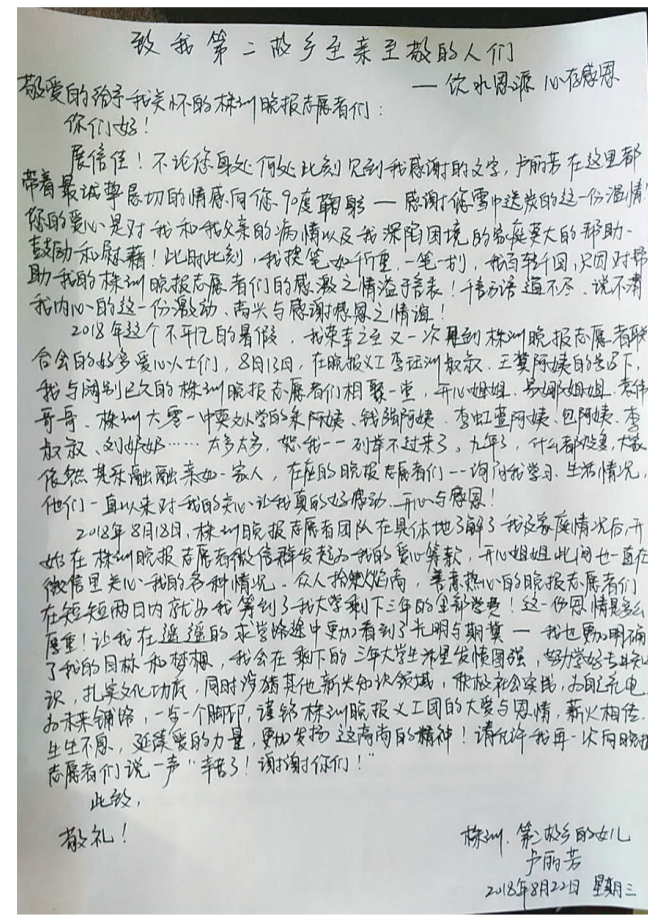 致我第二故乡至亲至敬的人们
—饮水思源 心存感恩
敬爱的给予我关怀的株洲晚报志愿者们：
你们好！
展信佳！不论您身处何处此刻见到我感谢的文字，卢丽芳在这里都
带着最诚挚恳切的情感向您90度鞠躬—感谢您雪中送炭的这一份温情！
您的爱心是对我和我父亲的病情以及我深陷困境的家庭莫大的帮助、
鼓励和慰藉！此时此刻，我提笔如千重，一笔一划，我百转千回，只因对帮
助我的株洲晚报志愿者们的感激之情溢于言表！千言万语道不尽、说不清
我内心的这一份激动、高兴与感谢感恩之情谊！
2018年这个不平凡的暑假，我荣幸之至又一次见到株洲晚报志愿者联
合会的好多爱心人士们，8月13日，在晚报义工李证洲叔叔、王英阿姨的召下，
我与阔别已久的株洲晚报志愿者们相聚一堂，开心姐姐、易娜姐姐、袁伟
哥哥、株洲大零一中英文小学的朱阿姨、钱强阿姨、李虹查阿姨、包阿姨、李
叔叔、刘奶奶……太多太多，恕我一一列举不过来了。九年了，什么都没变，大家
依然其乐融融亲如一家人，在座的晚报志愿者们一一询问我学习、生活情况，
他们一直以来对我的关心让我真的好感动、开心与感恩！
2018年8月18日，株洲晚报志愿者团队在具体地了解了我及家庭情况后，开
始在株洲晚报志愿者微信群发起为我的爱心筹款，开心姐姐此间也一直在
微信里关心我的各种情况。众人拾柴火焰高，善意热心的晚报志愿者们
在短短两日内就为我筹到了我大学剩下三年的全部学费！这一份恩情是多么
厚重！让我在遥遥的求学路途中更加看到了光明与期冀—我也更加明确
了我的目标和梦想，我会在剩下的三年大学生涯里发愤图强，努力学好专业知
识，扎实文化功底，同时涉猎其他新兴知识领域，积极社会实践，为自己充电，
为未来铺路，一步一个脚印，谨铭株洲晚报义工团的大爱与恩情，薪火相传、
生生不息，延续爱的力量，更加发扬这高尚的精神！请允许我再一次向晚报
志愿者们说一声“辛苦了！谢谢你们！”
此致，
敬礼！
株洲．第二故乡的女儿
卢丽芳
2018年8月22日 星期三